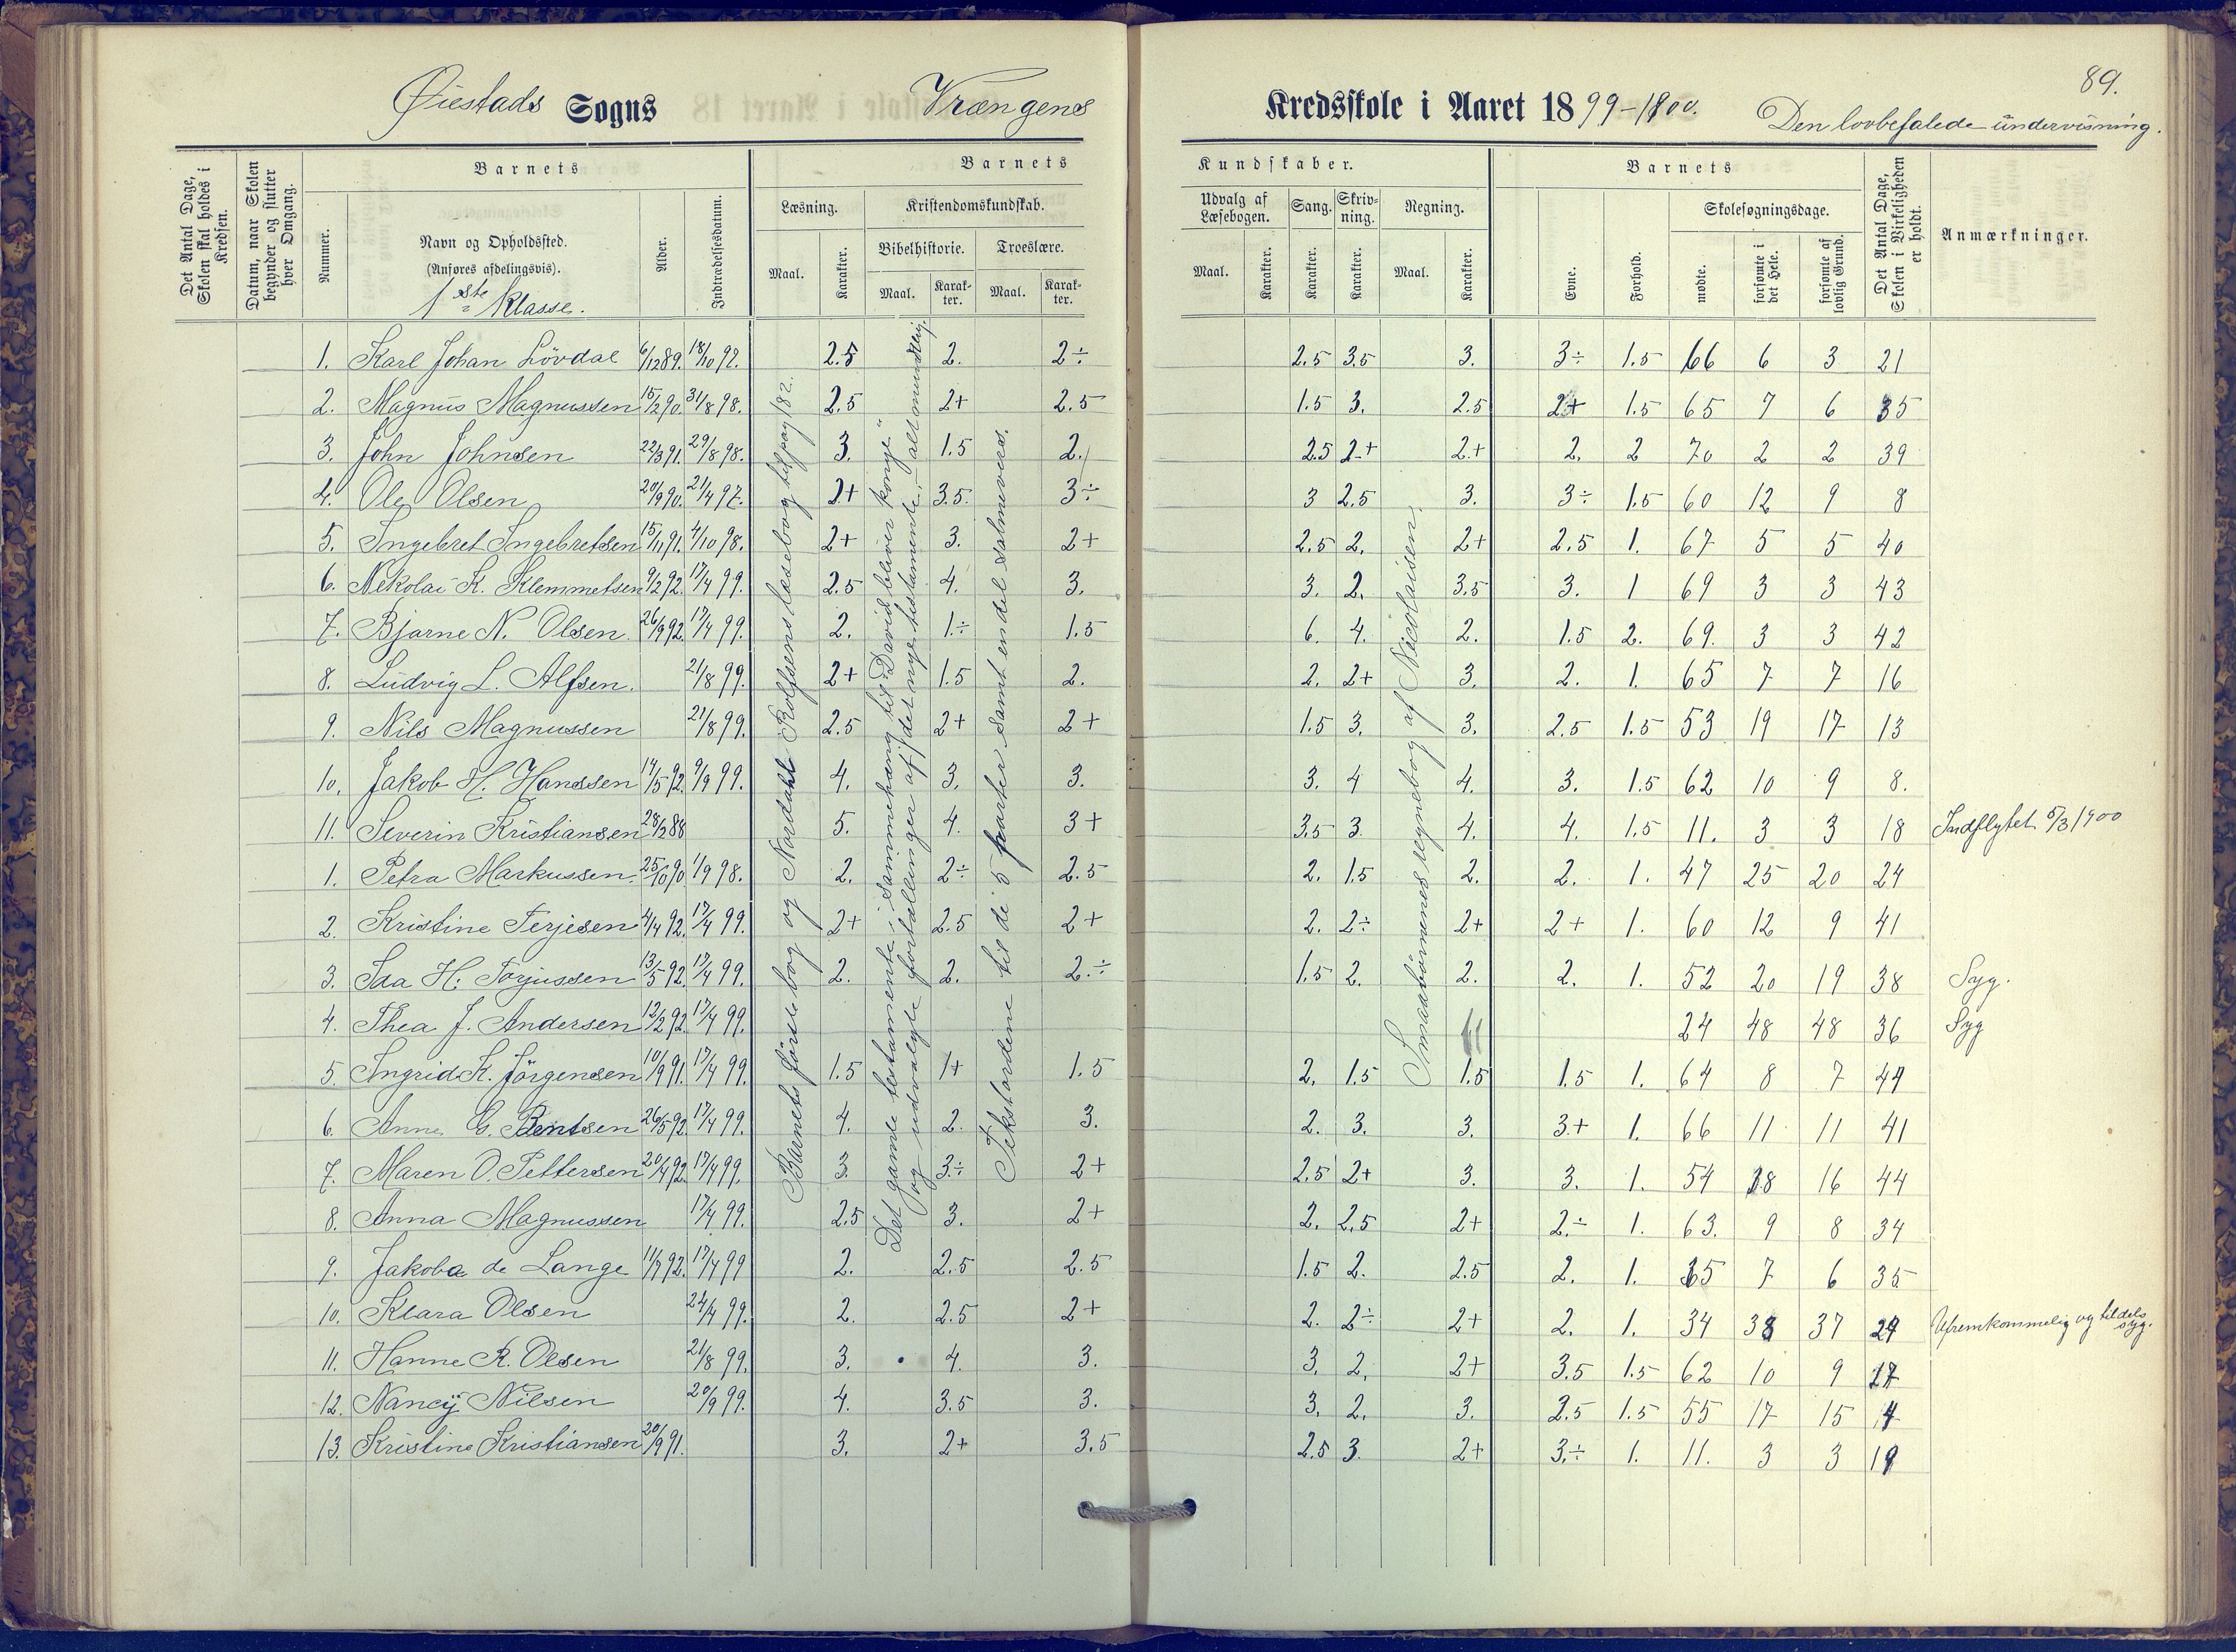 89.
Øiestads Sogns Vrængens Kredsskole i Aaret 1899-1900. Den lovbefalede undervisning.
Det Antal Dage, Skolen skal holdes i Kredsen.
Datum, naar Skolen begynder og slutter hver Omgang.
Barnets
Nummer.
Navn og Opholdssted.
(Anføres afdelingsvis).
1ste Klasse.
Alder.
Indtrædelsesdatum.
Barnets Kundskaber.
Læsning.
Maal.
Karakter.
Kristendomskundskab.
Bibelhistorie.
Maal.
Karakter.
Troeslære.
Maal.
Karakter.
Udvalg af Læsebogen.
Maal.
Karakter.
Sang.
Karakter.
Skrivning.
Karakter.
Regning.
Maal.
Karakter.
Barnets
Evne.
Forhold.
Skolesøgningsdage.
mødte.
forsømte i det Hele.
forsømte af lovlig Grund.
Det Antal Dage, Skolen i Virkeligheden er holdt.
Anmærkninger.
1. Karl Johan Lövdal 6/12 89. 18/10 97. 2.5 2. 2÷ 2.5 3.5 3. 3÷ 1.5 66 6 3 21
2. Magnus Magnussen 15/2 90. 31/8 98. 2.5 2+ 2.5 1.5 3. 2.5 2+ 1.5 65 7 6 35
3. John Johnsen 22/3 91. 29/8 98. 3. 1.5 2. 2.5 2+ 2+ 2. 2 70 2 2 39
4. Ole Olsen 20/9 90. 21/4 97. 2+ 3.5. 3÷ 3 2.5 3. 3÷ 1.5 60 12 9 8
5. Ingebret Ingebretsen 15/11 91. 4/10 98. 2+ 3. 2+ 2.5 2. 2+ 2.5 1. 67 5 5 40
6. Nekolai K. Klemmetsen 9/2 92. 17/4 99. 2.5 4. 3. 3. 2. 3.5 3. 1 69 3 3 43
7. Bjarne N. Olsen. 26/9 92. 17/4 99. 2. 1÷ 1.5 6. 4. 2. 1.5 2. 69. 3 3 42
8. Ludvig L. Alfsen. 21/8 99. 2+ 1.5 2. 2. 2+ 3. 2. 1. 65 7 7 16
9. Nils Magnussen 21/8 99. 2.5 2+ 2+ 1.5 3. 3. 2.5 1.5 53 19 17 13
10. Jakob H. Hanssen 14/5 92. 9/9 99. 4. 3. 3. 3. 4 4. 3. 1.5 62 10 9 8.
11. Severin Kristiansen 28/2 88 5. 4. 3+ 3.5 3. 4. 4. 1.5 11. 3 3 18 Indflyttet 5/3 1900
1. Petra Markussen. 25/10 90 1/9 98. 2. 2÷ 2.5 2. 1.5 2. 2. 1. 47 25 20 24
2. Kristine Terjesen 4/4 92. 17/4 99. 2+ 2.5 2+ 2. 2÷ 2+ 2+ 1. 60 12 9 41
3. Ida H. Torjussen 13/5 92. 17/4 99. 2. 2. 2.÷ 1.5 2. 2. 2. 1. 52 20 19 38 Syg.
4. Thea J. Andersen 12/2 92. 17/4 99. 24 48 48 36 Syg
5. Ingrid K. Jörgensen 10/9 91. 17/4 99. 1.5 1+ 1.5 2. 1.5 1.5 1.5 1. 64 8 7 44
6. Anne G. Bentsen 26/5 92. 17/4 99. 4. 2. 3. 2. 3. 3. 3+ 1. 66 11 11 41
7. Maren O. Pettersen 20/4 92. 17/4 99. 3. 3÷ 2+ 2.5 2+ 3. 3. 1. 54 18 16 44
8. Anna Magnussen 17/4 99. 2.5 3. 2+ 2. 2.5 2+ 2.÷ 1. 63. 9 8 34
9. Jakoba de Lange 11/7 92. 17/4 99 2. 2.5 2.5 1.5 2. 2.5 2. 1. 65 7 6 35
10. Klara Olsen 24/4 99. 2. 2.5 2+ 2. 2÷ 2+ 2. 1. 34 38 37 29 Ufremkommelig og tildels syg.
11. Hanne K. Olsen 21/8 99. 3. 4. 3. 3. 2. 2+ 3.5 1.5 62 10 9 17
12. Nancy Nilsen 20/9 99. 4. 3.5 3. 3. 2. 3. 2.5 1.5 55 17 15 4
13. Kristine Kristiansen 20/9 91. 3. 2+ 3.5 2.5 3. 2+ 3.÷ 1. 11. 3 3 19
Barnets første bog og Nordahl Rolfsens læsebog til pag 182.
Det gamle testamente i sammenhæng til: "David bliver konge"
og udvalgte fortællinger af det nye testamente, - alt mundtlig.
Tekstordene til de 5 parter samt en del salmevers.
Smaabørnenes regnebog af Nicolaisen.